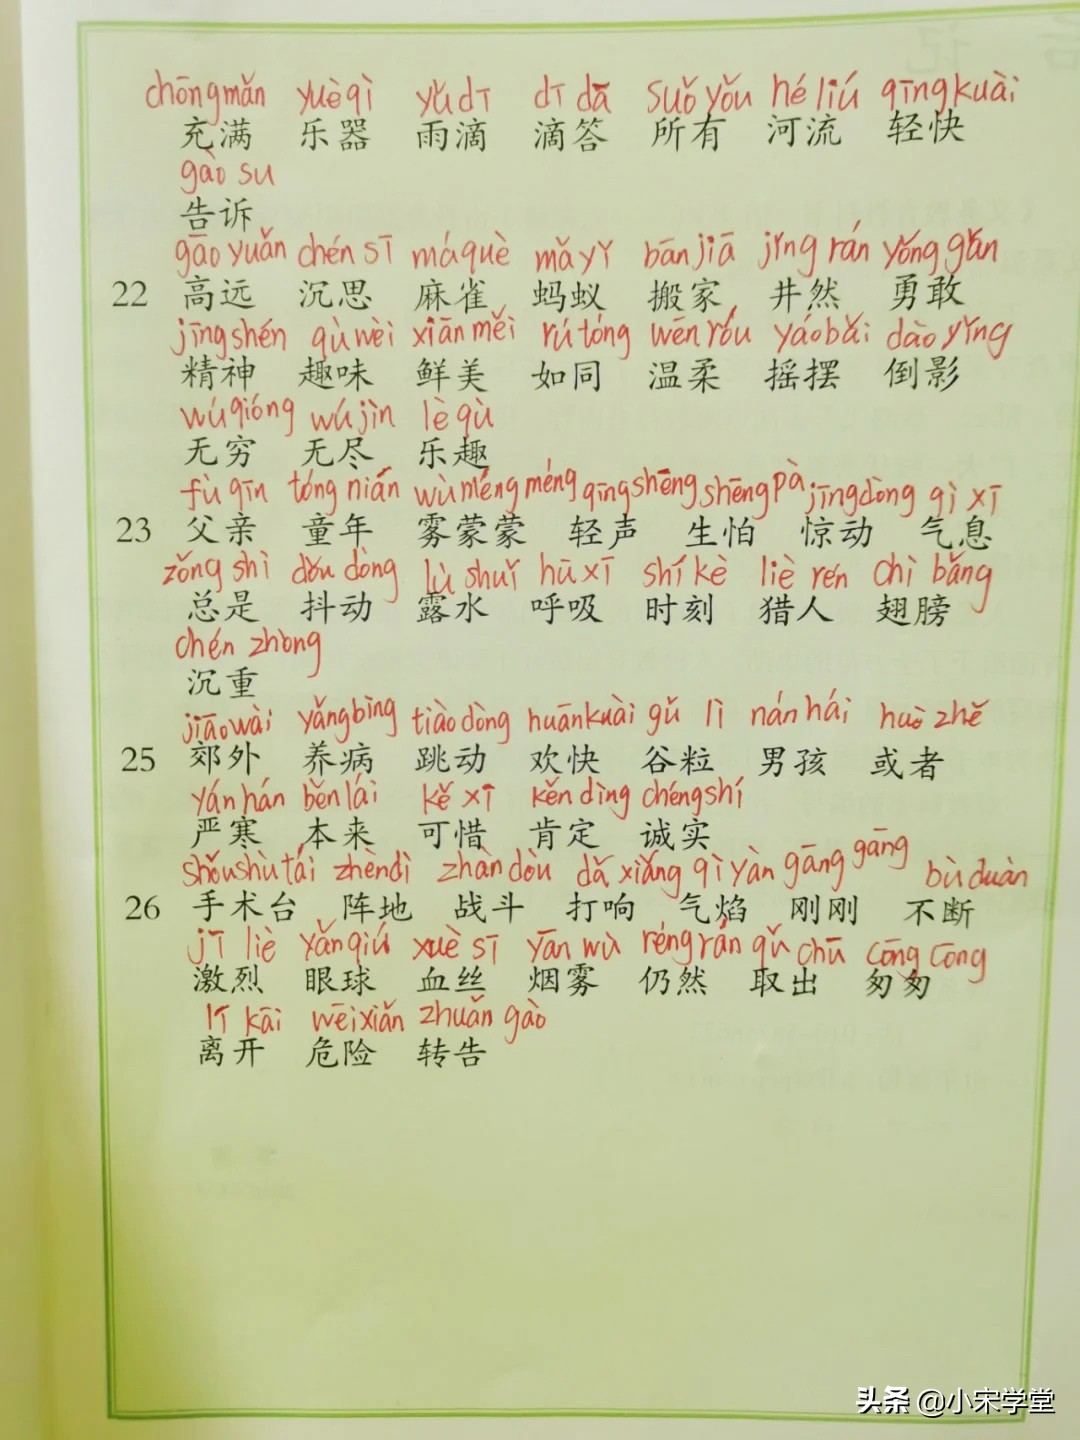 chōngmǎn yuèqì yǔdī dīdā suǒyǒu héliú qīngkuài
充满 乐器 雨滴 滴答 所有 河流 轻快
gàosu
告诉
gāoyuǎn chénsī máquè mǎyǐ bānjiā jǐngrán yǒnggǎn
22 高远 沉思 麻雀 蚂蚁 搬家 井然 勇敢
jīngshén qùwèi xiānměi rútóng wēnróu yáobǎi dàoyǐng
精神 趣味 鲜美 如同 温柔 摇摆 倒影
wúqióng wújìn lèqù
无穷 无尽 乐趣
fùqīn tóngnián wùméngméng qīngshēng shēngpà jīngdòng qìxī
23 父亲 童年 雾蒙蒙 轻声 生怕 惊动 气息
zǒngshì dǒudòng lùshuǐ hūxī shíkè lièrén chìbǎng
总是 抖动 露水 呼吸 时刻 猎人 翅膀
chénzhòng
沉重
jiāowài yǎngbìng tiàodòng huānkuài gǔlì nánhái huòzhě
25 郊外 养病 跳动 欢快 谷粒 男孩 或者
yánhán běnlái kěxī kěndìng chéngshí
严寒 本来 可惜 肯定 诚实
shǒushùtái zhèndì zhàndòu dǎxiǎng qìyàn gānggāng bùduàn
26 手术台 阵地 战斗 打响 气焰 刚刚 不断
jīliè yǎnqiú xuèsī yānwù réngrán qǔchū cōngcōng
激烈 眼球 血丝 烟雾 仍然 取出 匆匆
líkāi wēixiǎn zhuǎngào
离开 危险 转告
头条 @小宋学堂